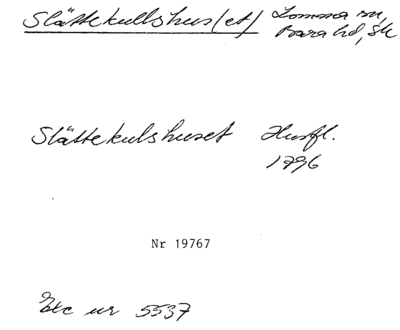 Slättekullshus(et) Lomma sn,
Bara hd, Sk
Slättekulshuset Husfl.
1796
Nr 19767
Etc nr 5537